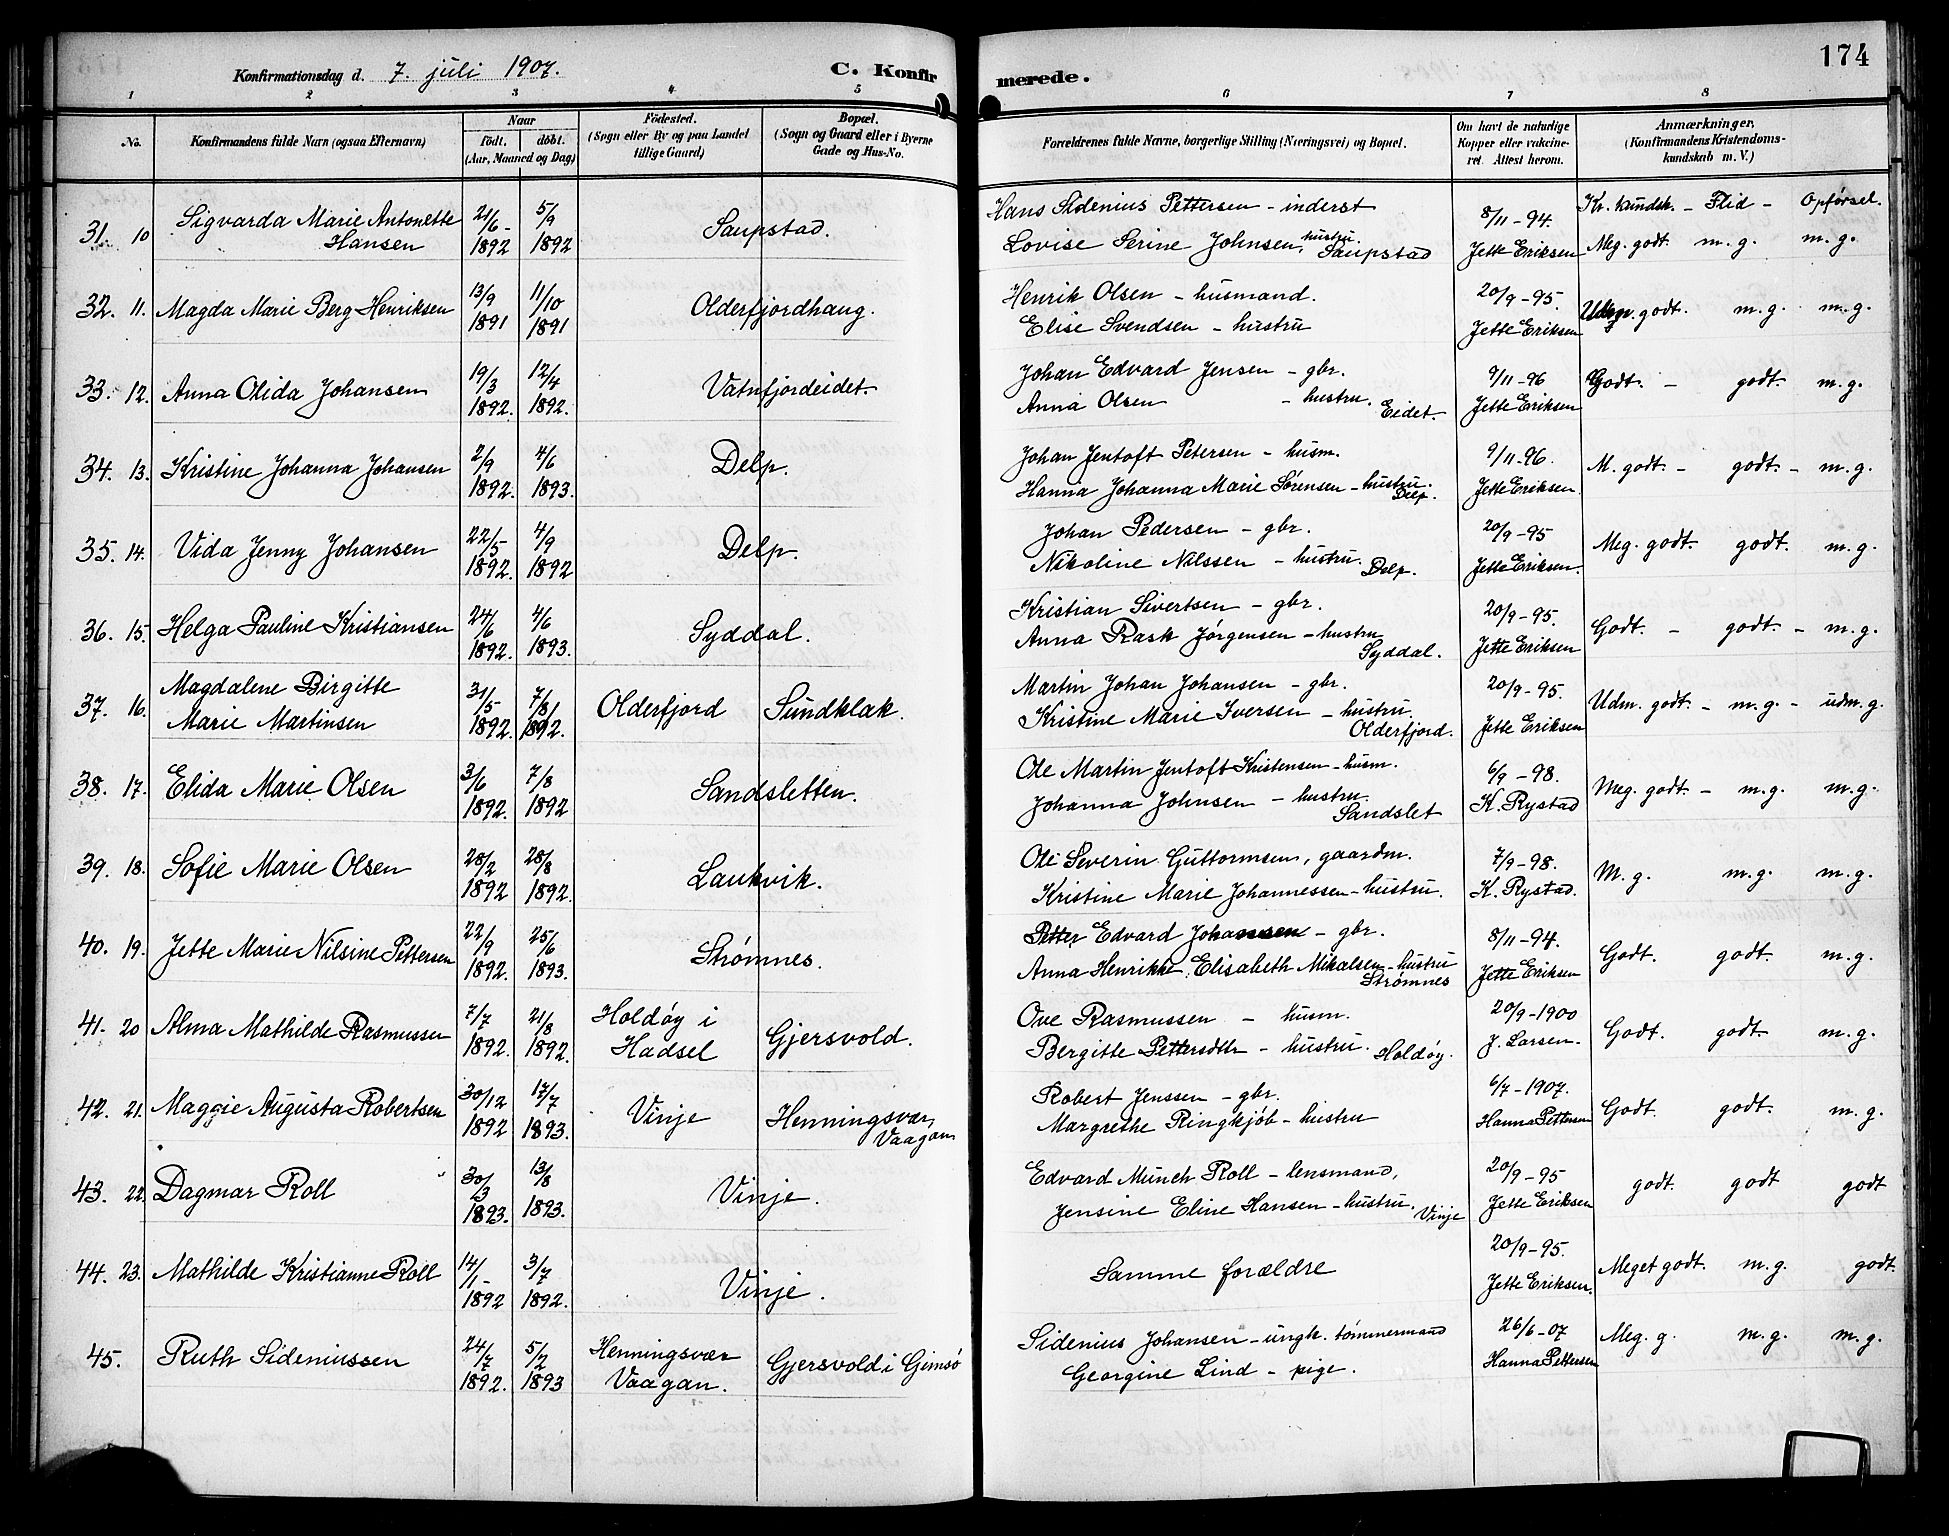 174
Konfirmationsdag d. 7. juli 1907.
C. Konfirmerede.
1 2 3 4 5 6 7 8
No.
Konfirmandens fulde Navn (ogsaa Efternavn)
Naar
födt. döbt.
(Aar, Maaned og Dag)
Födested.
(Sogn eller By og paa Landet
tillige Gaard)
Bopæl.
(Sogn og Gaard eller i Byerne
Gade og Hus-No.
Forældrenes fulde Navne, borgerlige Stilling (Næringsvei) og Bopæl.
Om havt de naturlige
Kopper eller vakcine-
ret. Attest herom.
Anmærkninger,
(Konfirmandens Kristendoms-
kundskab m. V.)
Kr. kundsk. – Flid – Opførsel.
31. 10 Sigvarda Marie Antonette Hansen 21/6 - 1892 5/9 1892 Saupstad.
Hans Sidenius Pettersen – inderst
Lovise Serine Johnsen, hustru. Saupstad
8/11 – 94. Jette Eriksen Meg. godt. m. g. m. g.
32. 11. Magda Marie Berg Henriksen 13/9 1891 11/10 1891 Olderfjordhaug.
Henrik Olsen – husmand.
Elise Svendsen – hustru
20/9 – 95. Jette Eriksen Udm. godt. m. g. m. g.
33. 12. Anna Olida Johansen 19/3 1892. 12/4 1892. Vatnfjordeidet.
Johan Edvard Jensen – gbr.
Anna Olsen – hustru. Eidet.
9/11 – 96 Jette Eriksen Godt. – godt. m. g.
34. 13. Kristine Johanna Johansen 2/9 1892. 4/6 1893. Delp.
Johan Jentoft Petersen – husm.
Hanna Johanna Marie Sørensen – hustru. Delp.
9/11 – 96. Jette Eriksen. M. godt. – godt. – m. g.
35. 14. Vida Jenny Johansen 22/5 1892. 4/9 1892 Delp.
Johan Pedersen – gbr.
Nikoline Nilssen – hustru. Delp.
20/9 – 95 Jette Eriksen. Meg. godt. godt. m. g.
36. 15. Helga Pauline Kristiansen 24/6 1892. 4/6 1893. Syddal.
Kristian Sivertsen – gbr.
Anna Rask Jørgensen – hustru Syddal.
20/9 – 95. Jette Eriksen Godt. – godt. – m. g.
37. 16. Magdalene Birgitte Marie Martinsen 31/5 1892. 7/8 1892. Olderfjord Sundklak.
Martin Johan Johansen – gbr.
Kristine Marie Iversen – hustru. Olderfjord.
20/9 – 95. Jette Eriksen Udm. godt. – m. g. – udm. g.
38. 17. Elida Marie Olsen 3/6 1892. 7/8 1892 Sandsletten.
Ole Martin Jentoft Kristensen – husm.
Johanna Johnsen – hustru. Sandslet
6/9 – 98. K. Rystad Meg. godt. – m. g. m. g.
39. 18. Sofie Marie Olsen 28/2 1892 28/8 1892. Laukvik.
Ole Severin Guttormsen, gaardm.
Kristine Marie Johannessen – hustru.
7/9 – 98. K. Rystad. M. g. m. g. m. g.
40. 19. Jette Marie Nilsine Pettersen 22/9 1892. 25/6 1893. Strømnes.
Petter Edvard Johansen – gbr.
Anna Henrikke Elisabeth Mikalsen – hustru Strømnes
8/11 – 94. Jette Eriksen Godt. godt. m. g.
41. 20 Alma Mathilde Rasmussen 7/7 1892. 21/8 1892. Holdøy i Hadsel Gjersvold.
Ove Rasmussen – husm.
Bergitte Pettersdtr – hustru. Holdøy.
20/9 – 1900 J. Larsen. Godt. godt. m. g.
42. 21. Maggie Augusta Robertsen 30/12 1892 17/7 1893. Vinje Henningsvær, Vaagan
Robert Jenssen – gbr.
Margrethe Ringkjøb – hustru
6/7 – 1907. Hanna Pettersen Godt. godt. m. g.
43. 22. Dagmar Roll 30/3 1893. 13/8 1893. Vinje.
Edvard Munch Roll – lensmand,
Jensine Eline Hansen – hustru. Vinje
20/9 – 95 Jette Eriksen godt. godt godt
44. 23. Mathilde Kristianne Roll 14/1 - 1892 3/7 1892. Vinje.
Samme forældre
20/9 – 95. Jette Eriksen. Meget godt. m. g. godt.
45. Ruth Sideniussen 24/7 1892. 5/2 1893 Henningsvær Vaagan. Gjersvold i Gimsø
Sidenius Johansen – ungk. tømmermand
Georgine Lind – pige.
26/6 – 07 Hanna Pettersen Meg. g. m. g. m. g.